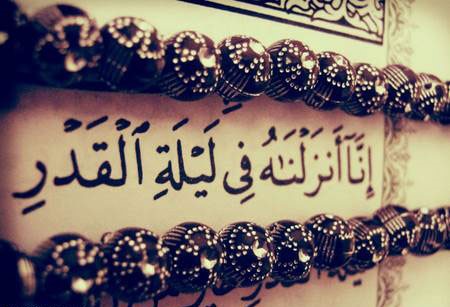 إِنَّآ أَنزَلْنَـٰهُ فِي لَيْلَةِ ٱلْقَدْرِ